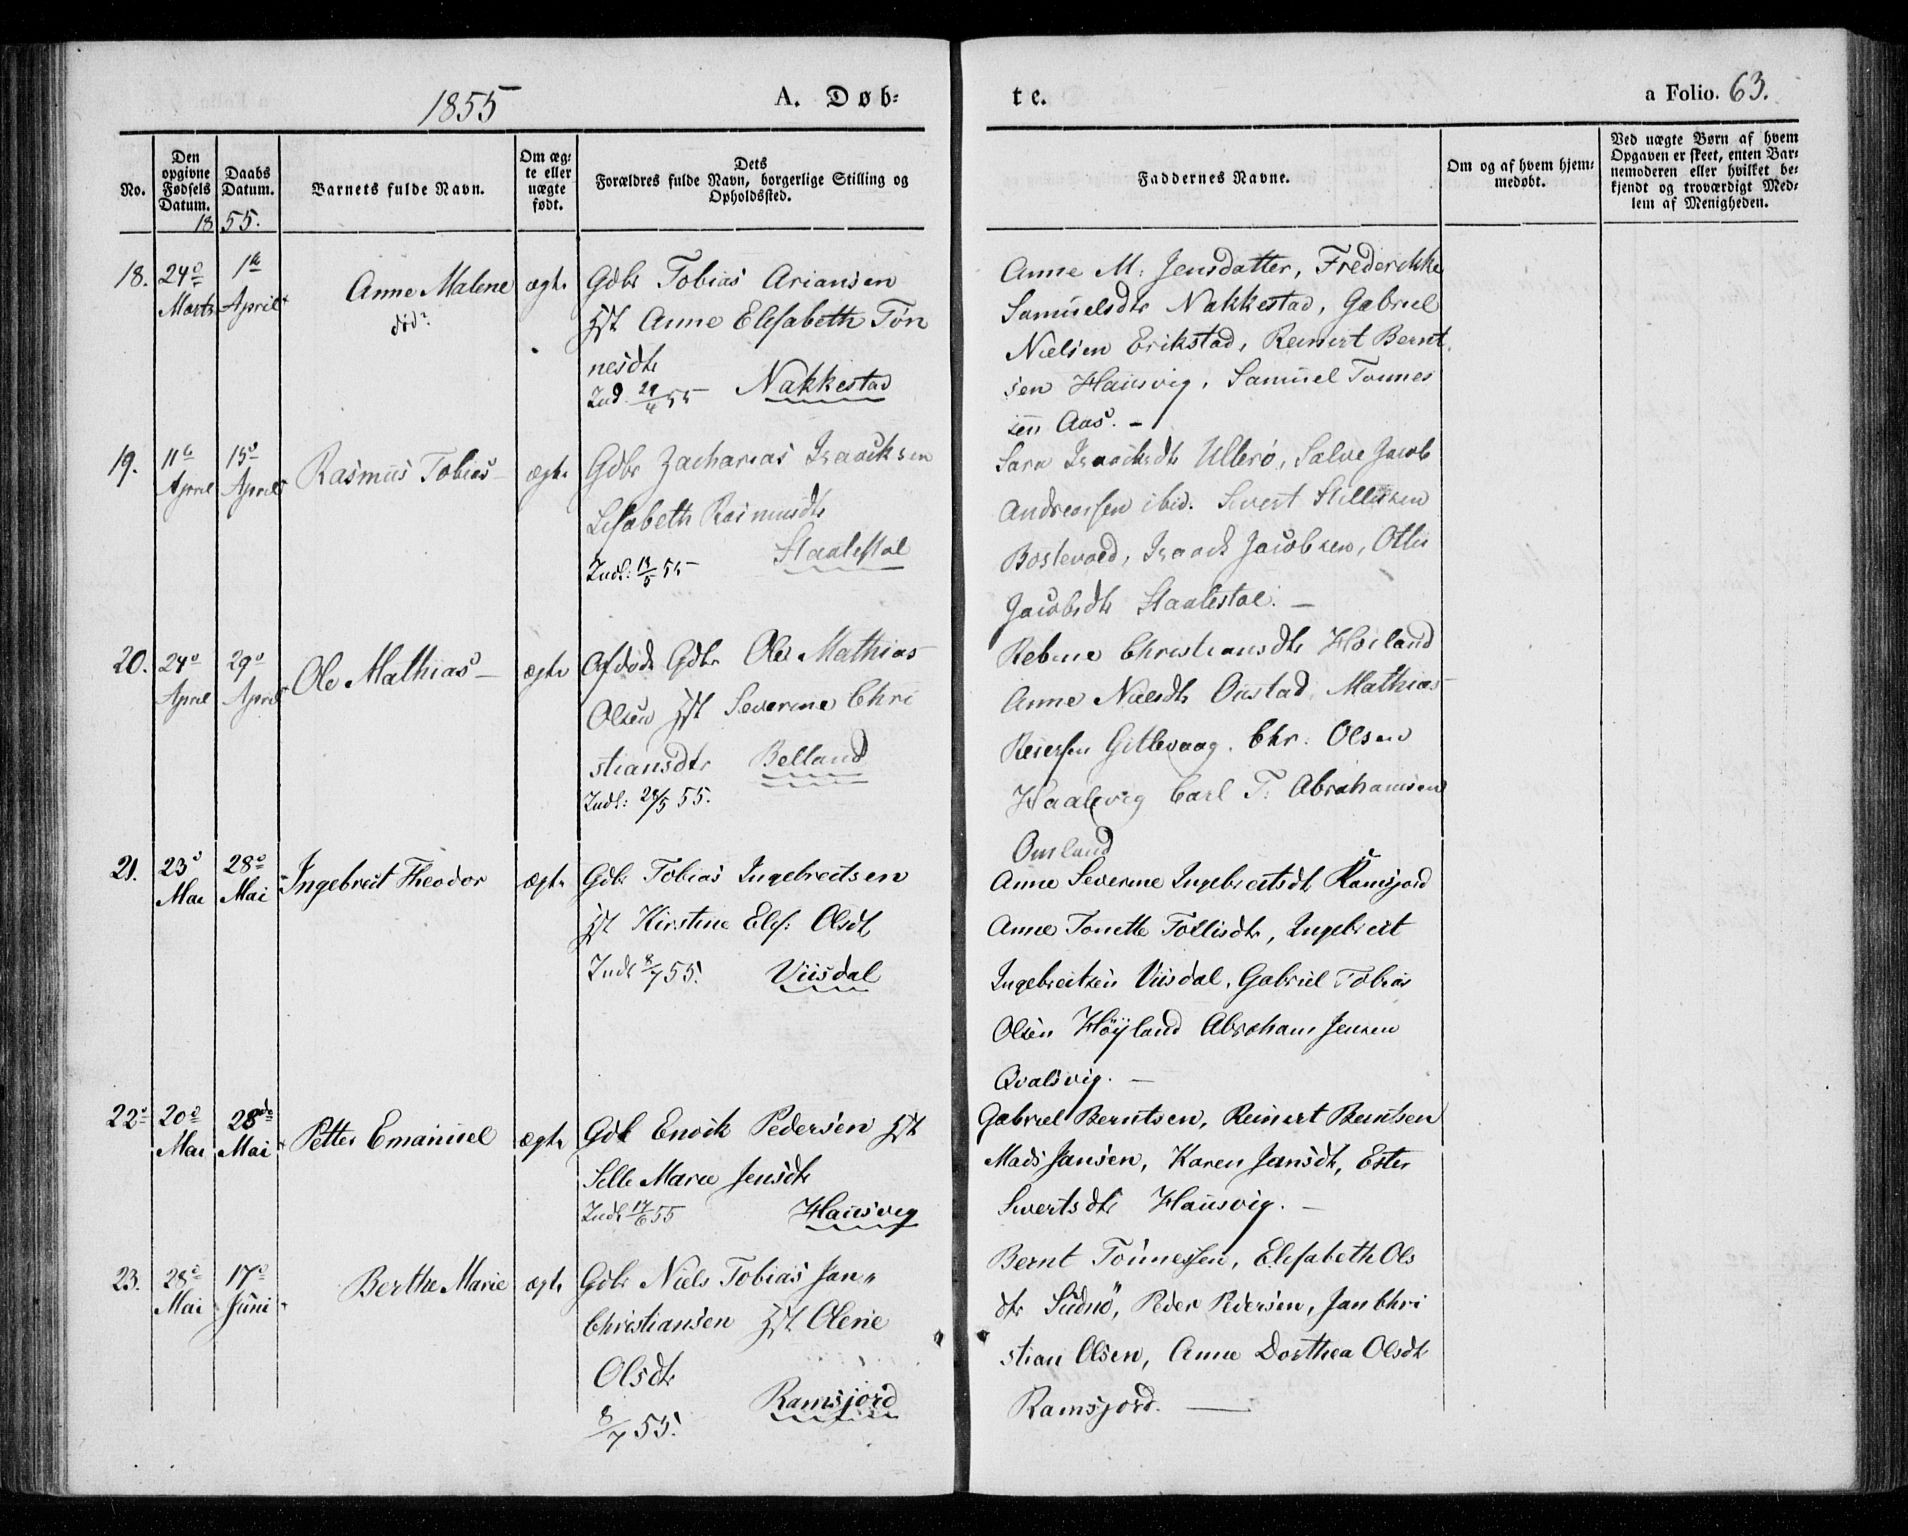 1855 A. Døb-
te. a Folio. 63.
No.
Den opgivne Fødsels Datum.
Daabs Datum.
18 55.
Barnets fulde Navn.
Om ægte eller uægte født.
Dets
Forældres fulde Navn, borgerlige Stilling og
Opholdssted.
Faddernes Navne.
Om og af hvem hjem-
medøbt.
Ved uægte Børn af hvem
Opgaven er skeet, enten Bar-
nemoderen eller hvilket be-
kjendt og troværdigt Med-
lem af Menigheden.
18. 24de Marts 1te April Anne Malene død ægte
Gdbr Tobias Ariansen
Hst Anne Elisabeth Tøn
nesdtr
Ind 29/4 55 Nakkestad
Anne M. Jensdatter, Frederikke
Samuelsdtr Nakkestad, Gabriel
Nielsen Erikstad, Reinert Bernt
sen Hausvig, Samuel Tønnes
sen Aas. –
19. 11te April 15de April Rasmus Tobias – ægte
Gdbr Zacharias Isaacksen
Lisabeth Rasmusdtr
Staalestøl
Indl: 13/5 55
Sara Isaacksdtr Ullerø, Salve Jacob
Andreassen ibid. Sivert
Isaack Jacobsen,
Jacobsdtr Staalestøl. –
20. 24de April 29de April Ole Mathias – ægte
Afdøde Gdbr Ole Mathias
Olsen Hst Severine Chri
stiansdtr Belland
Indl: 28/5 55.
Christiansdtr Høiland
Anne Nielsdtr Mathias
Reiersen Gitlevaag. Chr. Olsen
Haalevig Carl T. Abrahamsen
Omland
21. 23de Mai 28de Mai Ingebreit Theodor ægte
Gdbr Tobias Ingebreitsen
Hst Kirstine Elis: Olsdtr
Indl 8/7 55. Viisdal
Anne Severine Ingebreitsdtr Ramsjord
Anne Tonette Tollisdtr, Ingebreit
Ingebreitsen Viisdal, Gabriel Tobias
Olsen Høyland Abraham Jensen
Qvalsvig. –
22. 20de Mai 28de Mai Petter Emanuel ægte
Gdb Enoch Pedersen Hst
Sille Marie Jensdtr
Indl 17/6 55 Hausvig
Gabriel Berntsen, Reinert Berntsen
Mads Jansen, Karen Jansdtr, Ester
Sivertsdtr Hausvig. –
23. 28de Mai 17de Juni Berthe Marie ægte
Gdbr Niels Tobias Jan-
Christiansen Hst Olene
Olsdtr
8/7 55. Ramsjord
Bernt Tønnessen, Elisabeth Ols
dtr Sudnø, Peder Pedersen, Jan Chri
stian Olsen, Anne Dorthea Olsdtr
Ramsjord. –